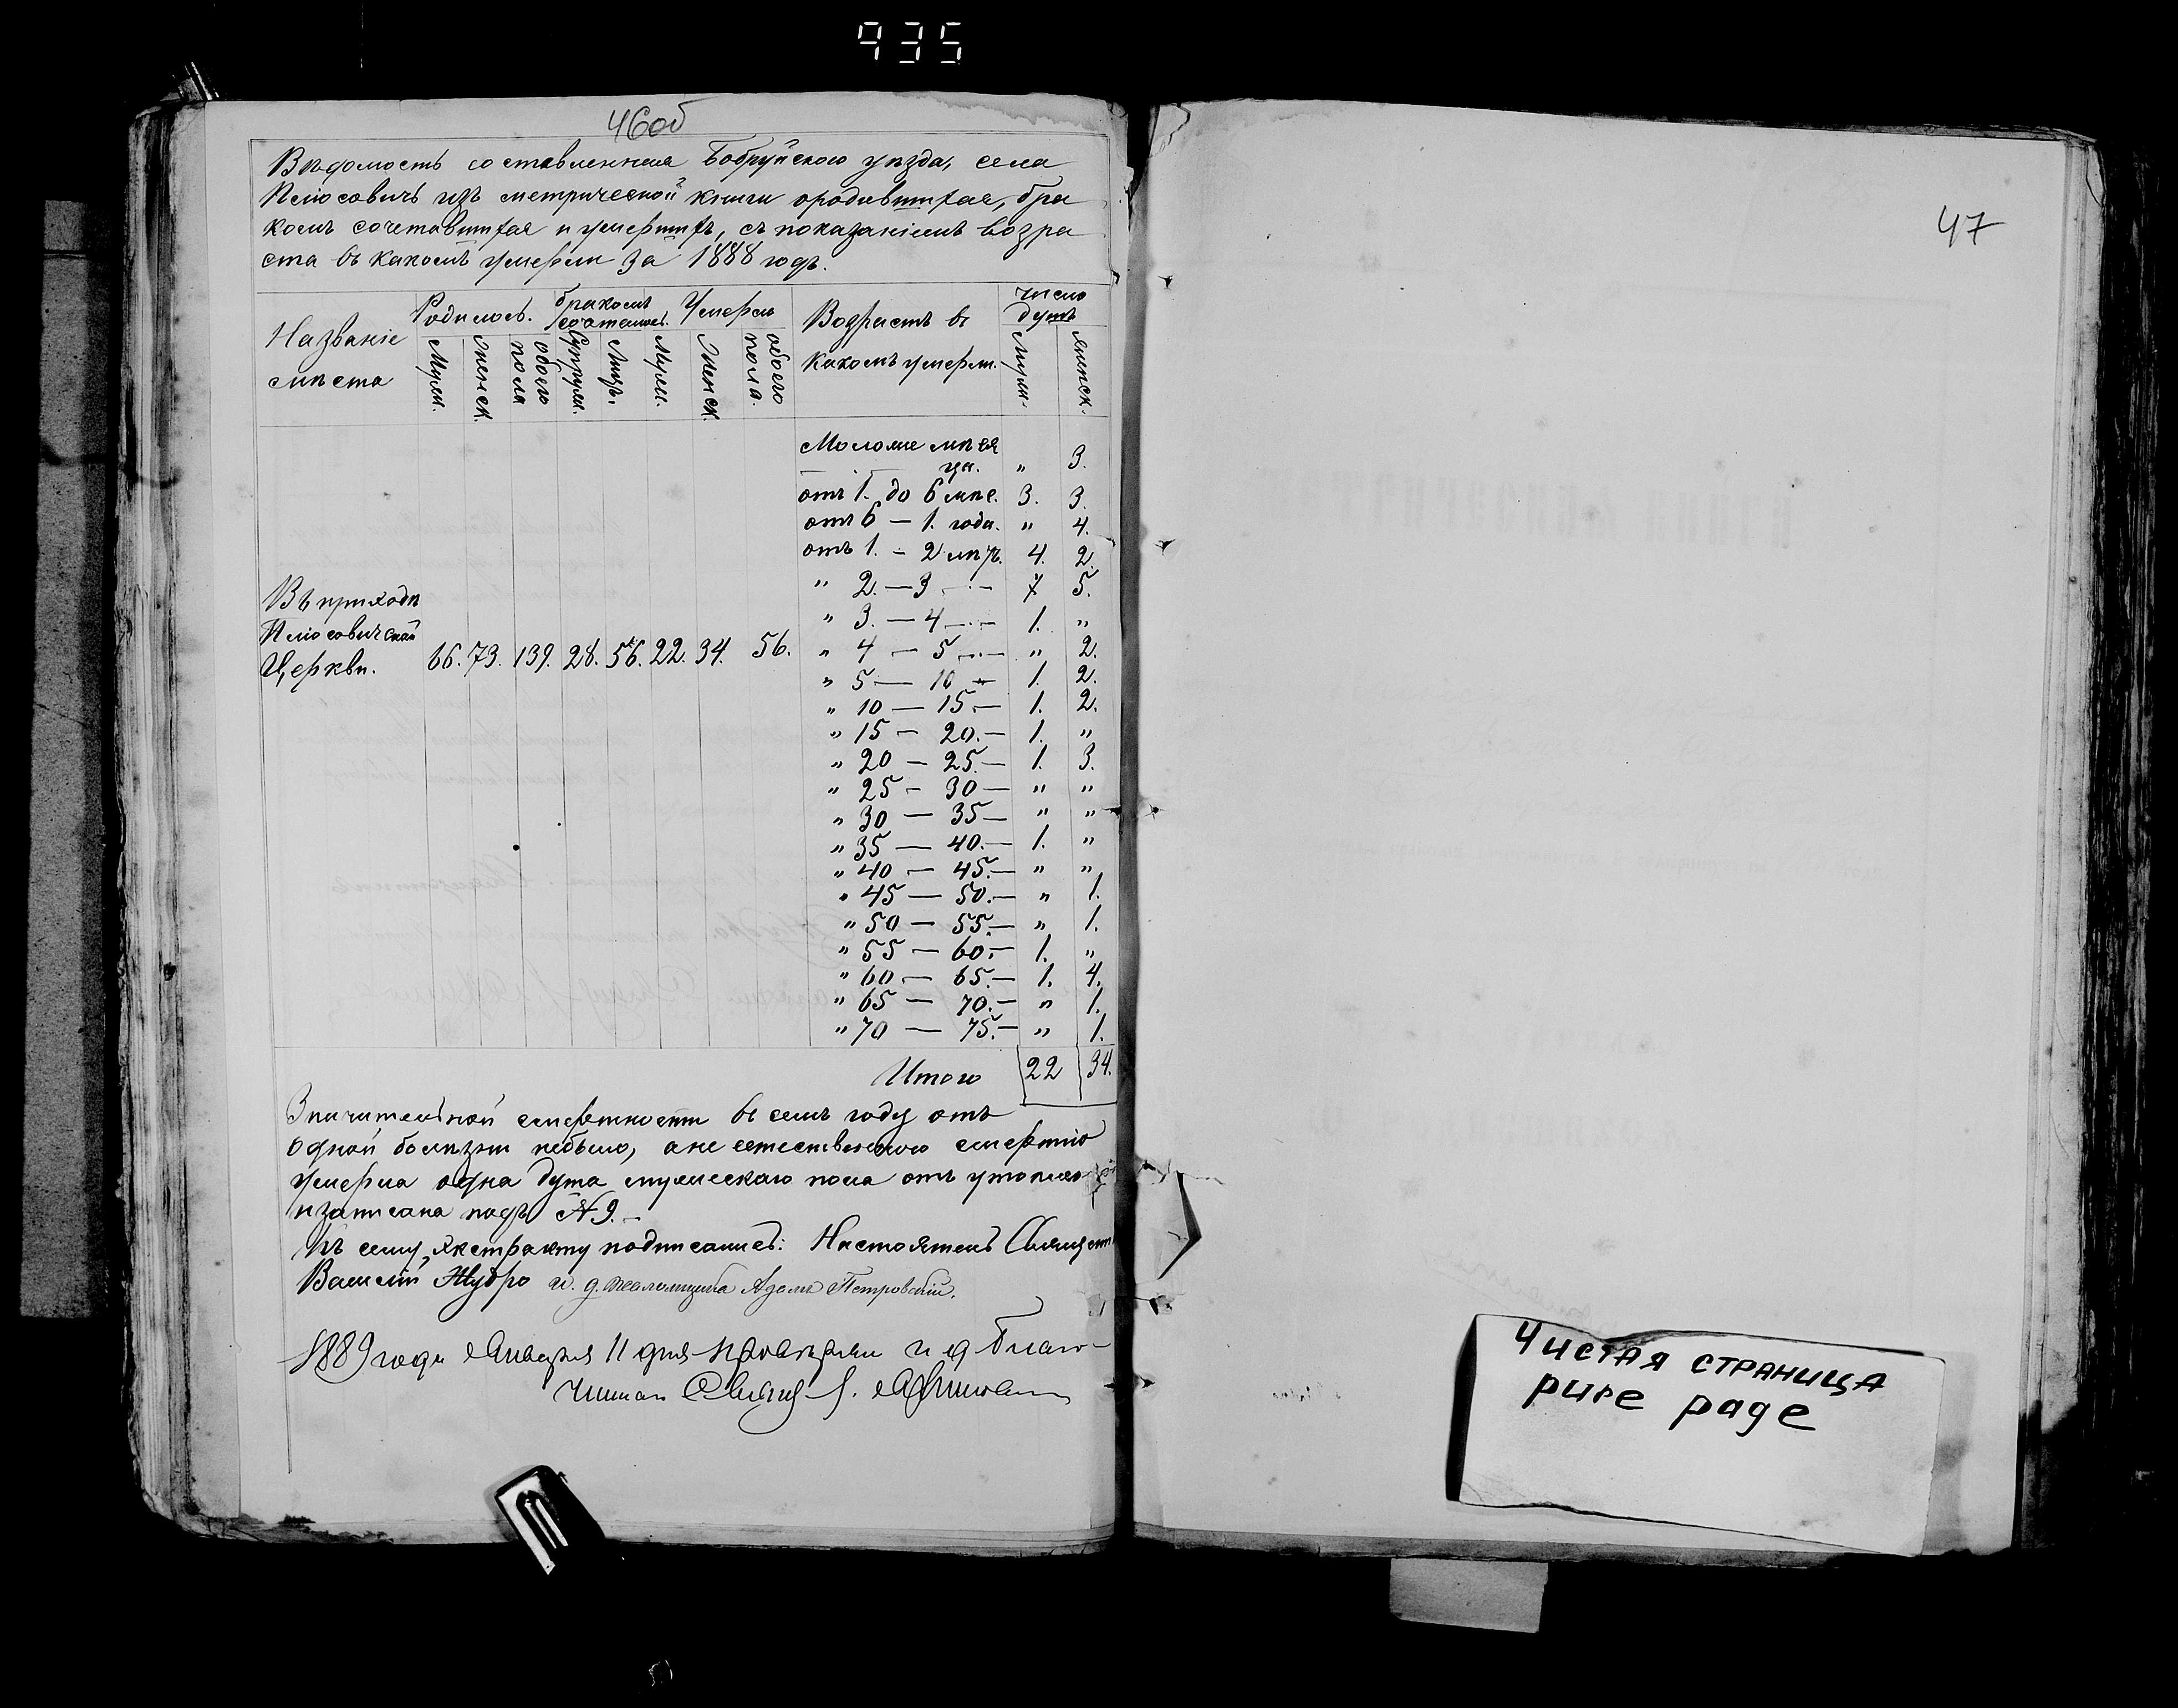 935
46об
Вѣдомость составленная Бобруйского уѣзда, села
Телюсовичъ изъ метрической книги ородившихся, бра
комъ сочетавшихся и умершихъ, съ показаніемъ возра
ста въ какомъ умерли за 1888 годъ.
Названіе мѣста | Родилось. | бракомъ сочеталось. | Умерли | Возрастъ въ какомъ умерли. | число душъ
Муж. | Женск. | обоего пола | Супруж. | Лицъ. | Муж. | Женск. | обоего пола. | Муж. | женск.
Моложе мѣся
ца. " 3.
отъ 1. до 6 мѣс. 3. 3.
отъ 6 — 1. года. " 4.
отъ 1. — 2 лѣтъ. 4. 2.
" 2. — 3 — 7 5.
" 3. — 4 — 1. "
" 4 — 5 — " 2.
" 5 — 10 — 1. 2.
" 10 — 15. — 1. 2.
" 15 — 20. — 1. "
" 20 — 25. — 1. 3.
" 25 — 30 — " "
" 30 — 35 — " "
" 35 — 40. — 1. "
" 40 — 45. — " "
" 45 — 50. — " 1.
" 50 — 55. — " 1.
" 55 — 60. — 1. "
" 60 — 65. — 1. 4.
" 65 — 70. — " 1.
" 70 — 75. — " 1.
Въ приходѣ
Церкви. 66. 73. 139. 28. 56. 22. 34. 56.
Итого 22 34.
Значительной смертности въ семъ году отъ
одной болѣзни небыло, а не естественною смертію
умерла одна душа мужескаго пола отъ
и записана подъ № 9. —
Къ сему экстракту подписались: Настоятель Священ
Василій Жудро и. д. псаломщика Адамъ Петровскій.
1889 года Января 11 дня провѣрялъ и д Благо-
чиннаго Свящ.
47
Чистая страница
pure page